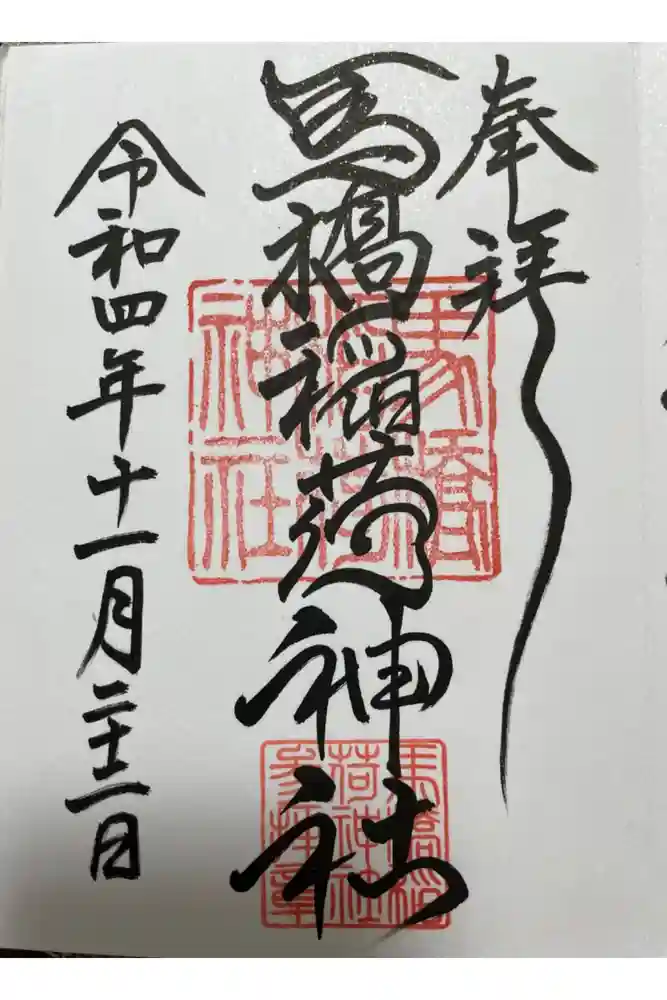 奉拝
馬橋稲荷神社
令和四年十一月二十二日
馬橋
稲荷
神社
馬橋稲
荷神社
参拝章